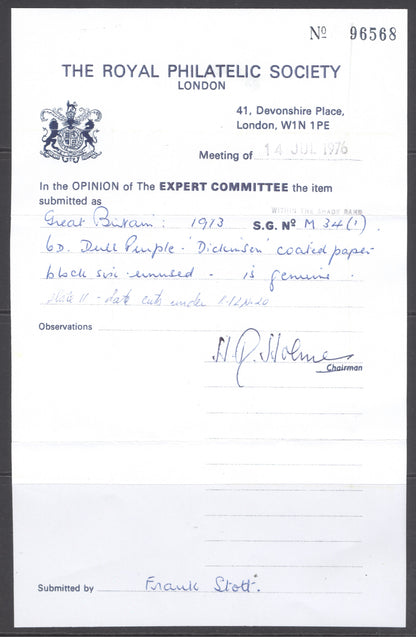 Nº 96568
THE ROYAL PHILATELIC SOCIETY
LONDON
41, Devonshire Place,
London, W1N 1PE
Meeting of 14 JUL 1976
In the OPINION of The EXPERT COMMITTEE the item
submitted as
Great Britain: 1913 S.G. Nº M 34(1).
6D. Dull Purple. 'Dickinson' coated paper
block six unused - is genuine.
cuts under
Observations
Chairman
Submitted by Frank Stott.